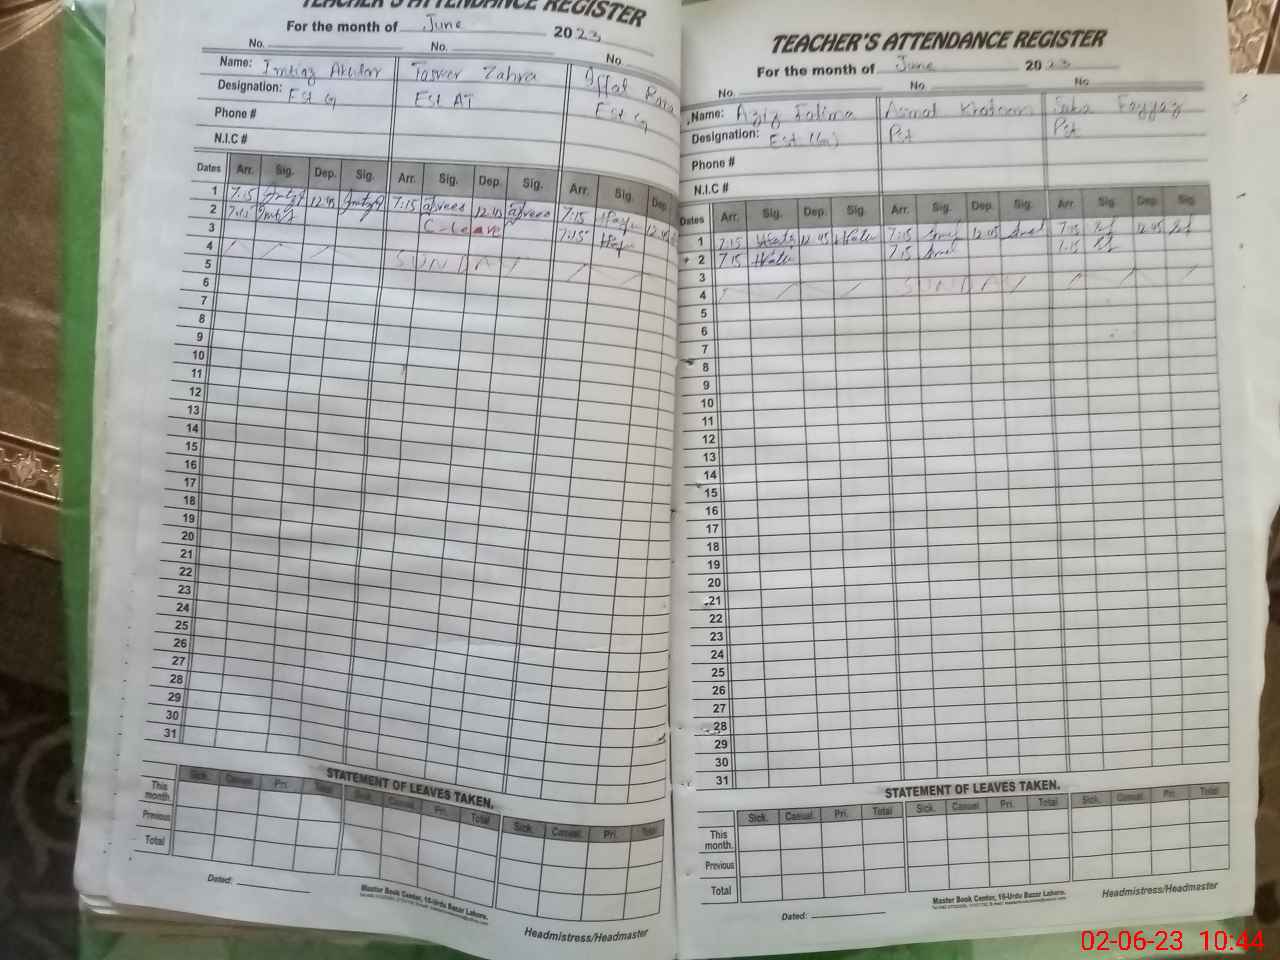 TEACHER'S ATTENDANCE REGISTER
For the month of June 2023
No. No. No.
Name: Imtiaz Akhtar Tasver Zahra Iffat Rana
Designation: Est G Est AT Est G
Phone #
N.I.C #
Dates Arr. Sig. Dep. Sig. Arr. Sig. Dep. Sig. Arr. Sig. Dep
1 7:15 12.45 7:15 12.45 7:15 12.45
2 7:15 C-Leave 7:15
3
4 SUNDAY
5
6
7
8
9
10
11
12
13
14
15
16
17
18
19
20
21
22
23
24
25
26
27
28
29
30
31
STATEMENT OF LEAVES TAKEN.
Sick. Casual. Pri. Total Sick. Casual. Pri. Total Sick. Casual. Pri. Total
This month.
Previous
Total
Dated:
Master Book Center, 16-Urdu Bazar Lahore.
Headmistress/Headmaster
TEACHER'S ATTENDANCE REGISTER
For the month of June 2023
No. No. No
Name: Aziz Fatima Asmat Khatoon Saba Fayyaz
Designation: Est (G) Pst Pst
Phone #
N.I.C #
Dates Arr. Sig. Dep. Sig. Arr. Sig. Dep. Sig. Arr. Sig. Dep. Sig.
1 7:15 12.45 7:15 12.45 7:15 12.45
2 7:15 7:15 7:15
3
4 SUNDAY
5
6
7
8
9
10
11
12
13
14
15
16
17
18
19
20
21
22
23
24
25
26
27
28
29
30
31
STATEMENT OF LEAVES TAKEN.
Sick. Casual. Pri. Total Sick. Casual. Pri. Total Sick. Casual. Pri. Total
This month.
Previous
Total
Dated:
Master Book Center, 16-Urdu Bazar Lahore.
Headmistress/Headmaster
02-06-23 10:44